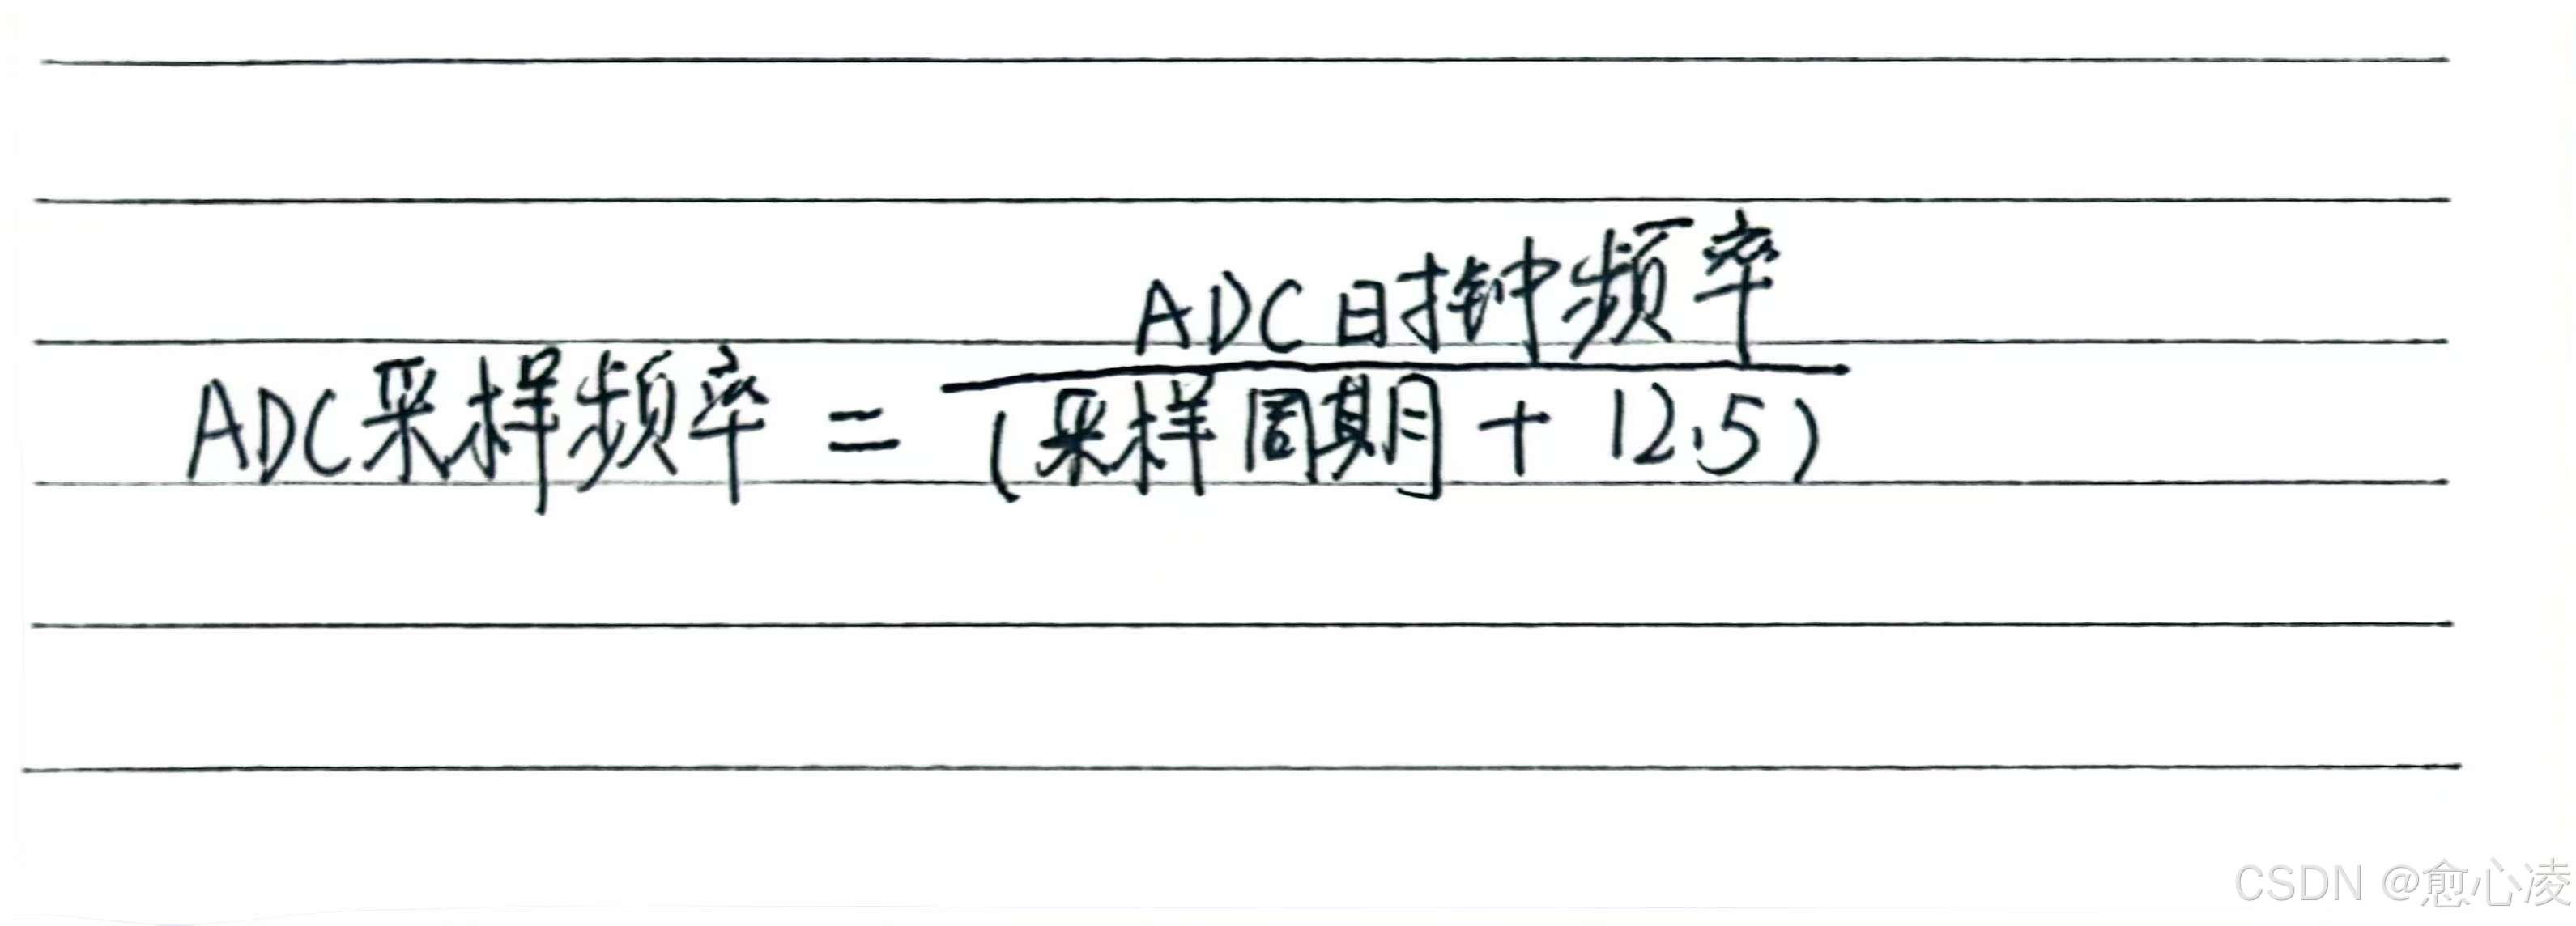 ADC采样频率 = ADC时钟频率 / (采样周期 + 12.5)
CSDN @愈心凌